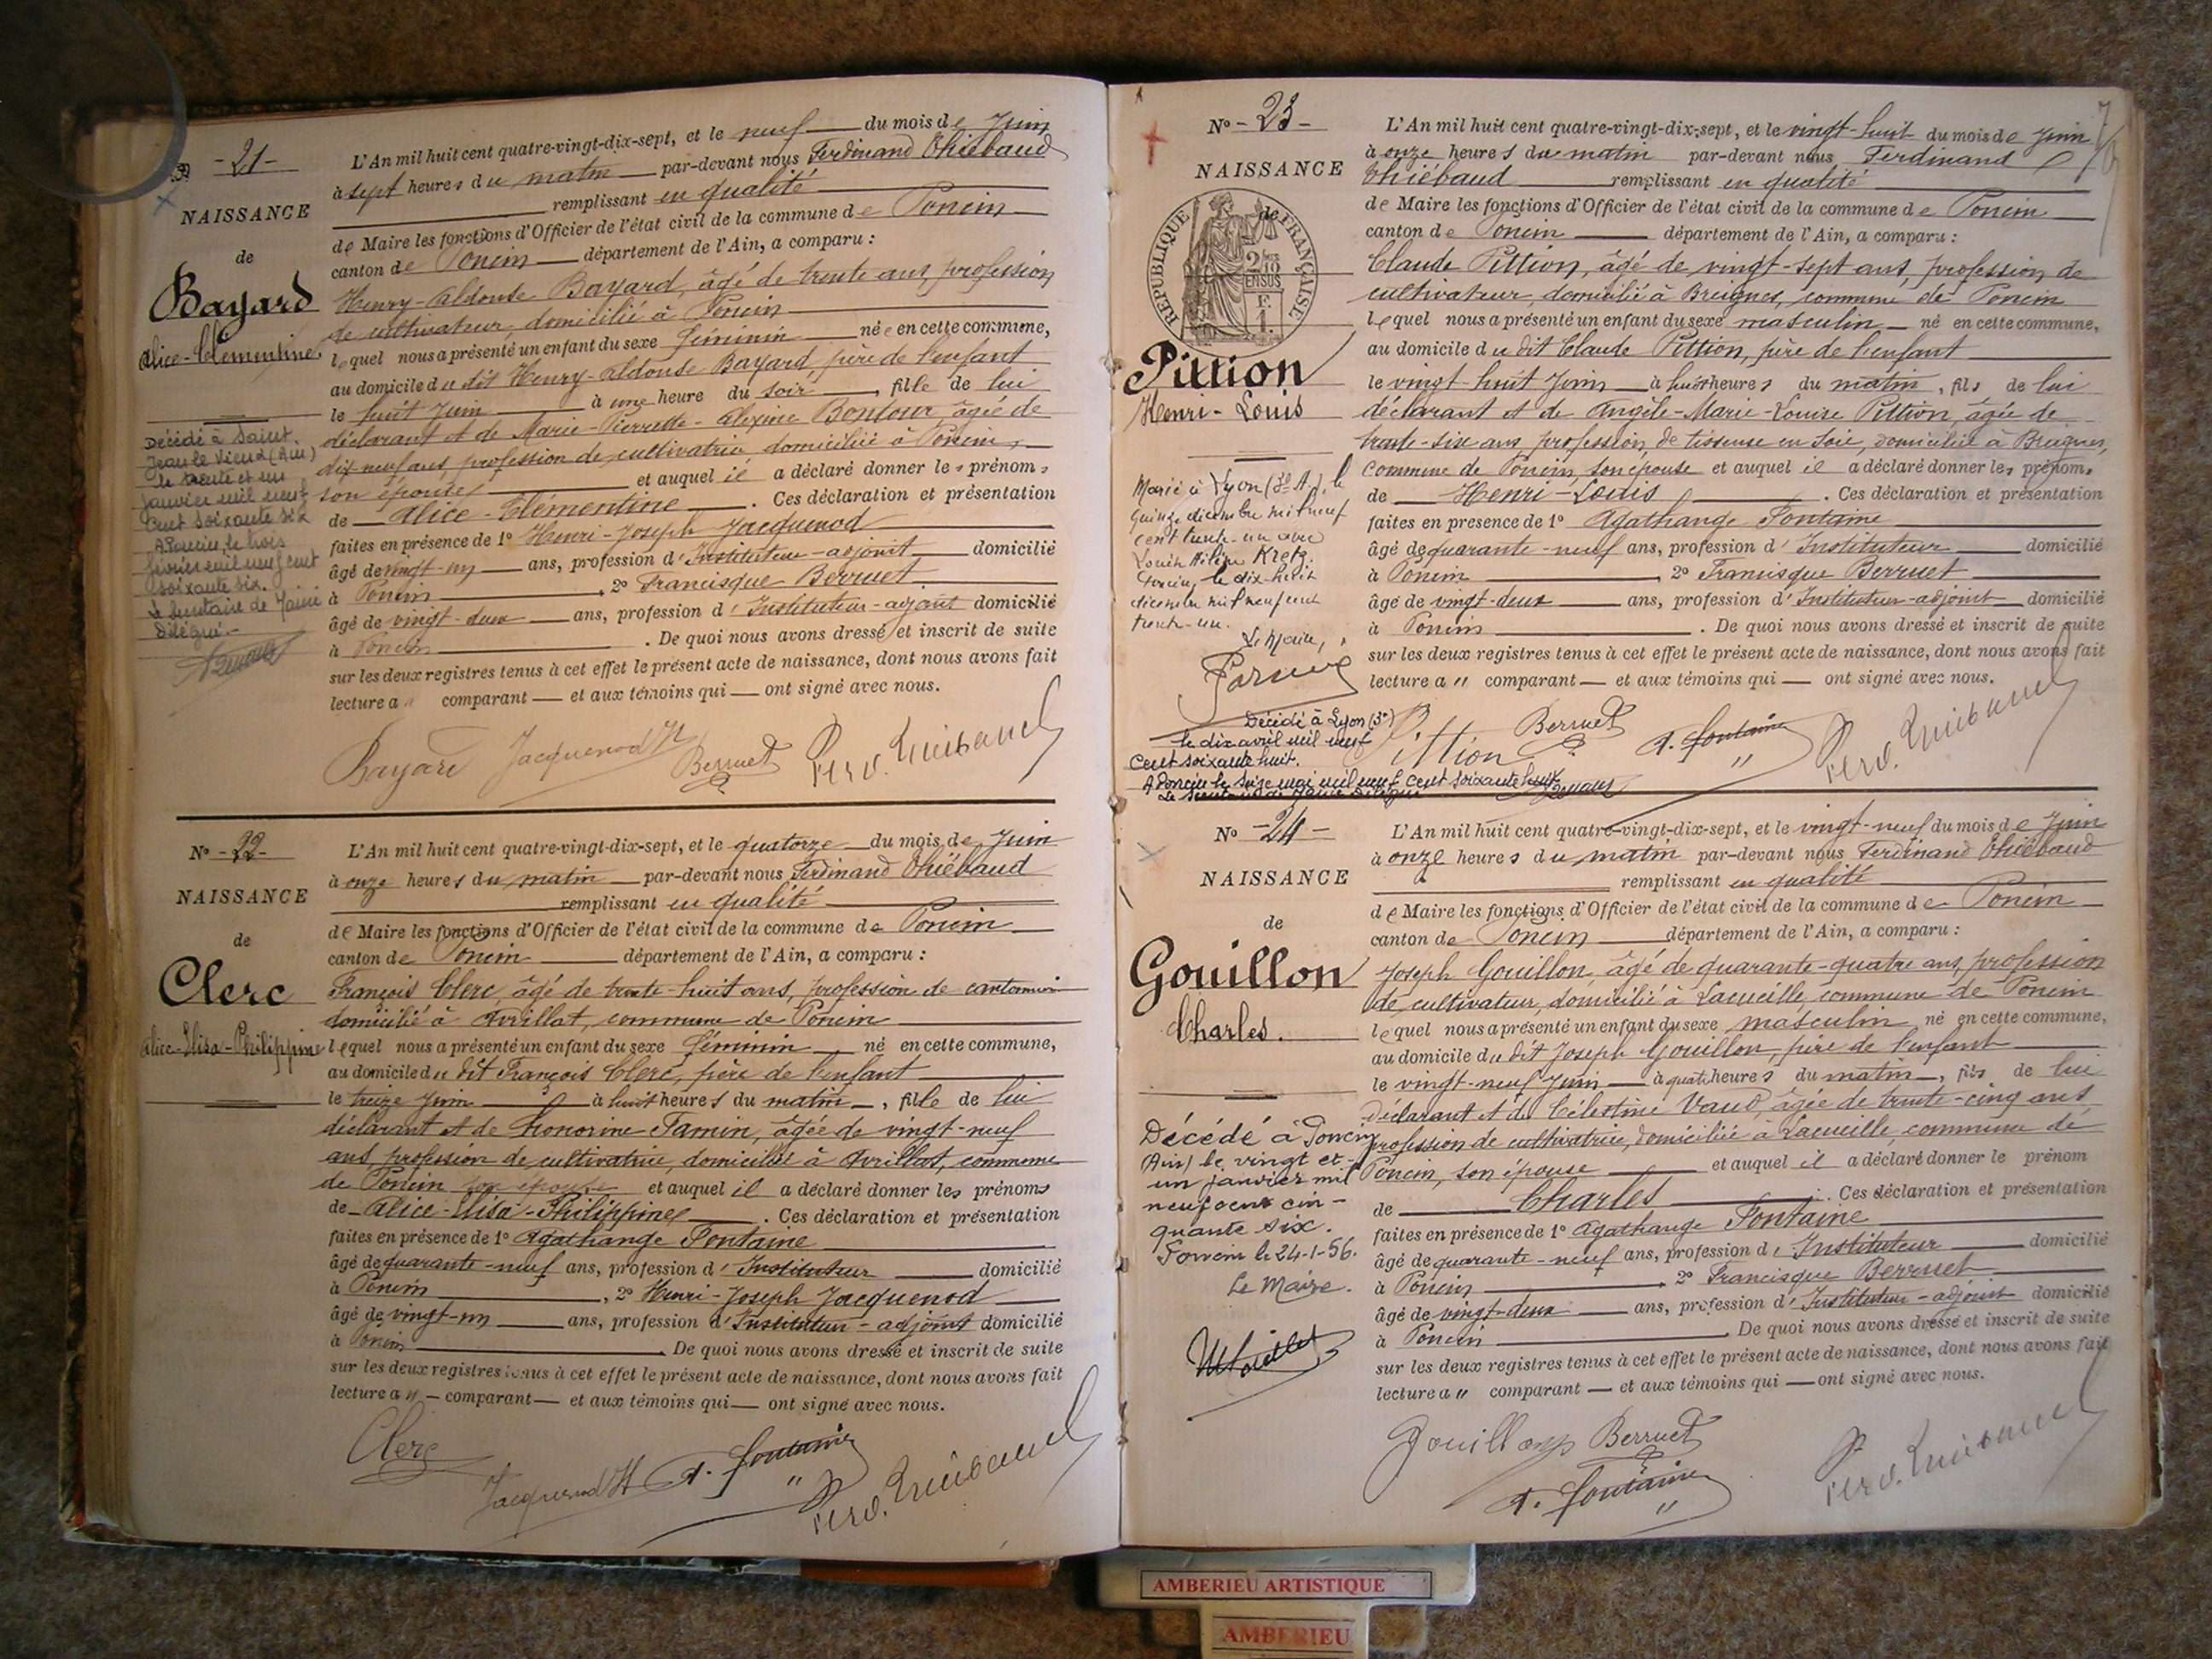 No - 21 -
NAISSANCE
de
Bayard
Alice-Clémentine
Décédé à Saint
Jean le Vieux (Ain)
le trente et un
janvier mil neuf
cent soixante six
A Poncin, le trois
février mil neuf cent
soixante six.
Le secrétaire de Mairie
Délégué.
L'An mil huit cent quatre-vingt-dix-sept, et le neuf du mois de Juin
à sept heures du matin par-devant nous Ferdinand Thiébaud
remplissant en qualité
de Maire les fonctions d'Officier de l'état civil de la commune de Poncin
canton de Poncin département de l'Ain, a comparu :
Henry-Aldonse Bayard, âgé de trente ans, profession
de cultivateur, domicilié à Poncin
lequel nous a présenté un enfant du sexe féminin née en cette commune,
au domicile du dit Henry-Aldonse Bayard, père de l'enfant
le huit Juin à une heure du soir, fille de lui
déclarant et de Marie-Pierrette-Alexine Bonjour, âgée de
dix neuf ans, profession de cultivatrice, domiciliée à Poncin,
son épouse et auquel il a déclaré donner les prénoms
de Alice-Clémentine. Ces déclaration et présentation
faites en présence de 1º Henri-Joseph Jacquenod
âgé de vingt-un ans, profession d'Instituteur-adjoint domicilié
à Poncin, 2º Francisque Berruet
âgé de vingt-deux ans, profession d'Instituteur-adjoint domicilié
à Poncin. De quoi nous avons dressé et inscrit de suite
sur les deux registres tenus à cet effet le présent acte de naissance, dont nous avons fait
lecture au comparant — et aux témoins qui — ont signé avec nous.
Bayard Jacquenod H Berruet Ferd. Thiébaud
No - 22 -
NAISSANCE
de
Clerc
Alice-Elisa-Philippine
L'An mil huit cent quatre-vingt-dix-sept, et le quatorze du mois de Juin
à onze heures du matin par-devant nous Ferdinand Thiébaud
remplissant en qualité
de Maire les fonctions d'Officier de l'état civil de la commune de Poncin
canton de Poncin département de l'Ain, a comparu :
François Clerc, âgé de trente-huit ans, profession de cantonnier
domicilié à Avrillat, commune de Poncin
lequel nous a présenté un enfant du sexe féminin né en cette commune,
au domicile du dit François Clerc, père de l'enfant
le treize Juin à huit heures du matin, fille de lui
déclarant et de Honorine Tamin, âgée de vingt-neuf
ans profession de cultivatrice, domiciliée à Avrillat, commune
de Poncin son épouse et auquel il a déclaré donner les prénoms
de Alice-Elisa-Philippine. Ces déclaration et présentation
faites en présence de 1º Agathange Fontaine
âgé de quarante-neuf ans, profession d'Instituteur domicilié
à Poncin, 2º Henri-Joseph Jacquenod
âgé de vingt-un ans, profession d'Instituteur-adjoint domicilié
à Poncin. De quoi nous avons dressé et inscrit de suite
sur les deux registres tenus à cet effet le présent acte de naissance, dont nous avons fait
lecture au — comparant — et aux témoins qui — ont signé avec nous.
Clerc Jacquenod H A. Fontaine Ferd. Thiébaud
No - 23 -
NAISSANCE
RÉPUBLIQUE FRANÇAISE
2/10 EN SUS
F. 1.
de
Pittion
Henri-Louis
Marié à Lyon (3e A), le
quinze décembre mil neuf
cent trente-un avec
Louise Hélène Kretz.
Poncin, le dix-huit
décembre mil neuf cent
trente-un.
Le Maire,
Décédé à Lyon (3e)
le dix avril mil neuf
cent soixante huit.
A Poncin le seize mai mil neuf cent soixante huit
Le secrétaire de Mairie Délégué
L'An mil huit cent quatre-vingt-dix-sept, et le vingt-huit du mois de Juin
à onze heures du matin par-devant nous Ferdinand
Thiébaud remplissant en qualité
de Maire les fonctions d'Officier de l'état civil de la commune de Poncin
canton de Poncin département de l'Ain, a comparu :
Claude Pittion, âgé de vingt-sept ans, profession de
cultivateur, domicilié à Breignes, commune de Poncin
lequel nous a présenté un enfant du sexe masculin né en cette commune,
au domicile du dit Claude Pittion, père de l'enfant
le vingt-huit Juin à huit heures du matin, fils de lui
déclarant et de Angèle-Marie-Louise Pittion, âgée de
trente-six ans, profession de tisseuse en soie, domiciliée à Breignes,
commune de Poncin, son épouse et auquel il a déclaré donner les prénoms
de Henri-Louis. Ces déclaration et présentation
faites en présence de 1º Agathange Fontaine
âgé de quarante-neuf ans, profession d'Instituteur domicilié
à Poncin, 2º Francisque Berruet
âgé de vingt-deux ans, profession d'Instituteur-adjoint domicilié
à Poncin. De quoi nous avons dressé et inscrit de suite
sur les deux registres tenus à cet effet le présent acte de naissance, dont nous avons fait
lecture au comparant — et aux témoins qui — ont signé avec nous.
Pittion Berruet A. Fontaine Ferd. Thiébaud
No - 24 -
NAISSANCE
de
Gouillon
Charles.
Décédé à Poncin
(Ain) le vingt et
un janvier mil
neuf cent cin-
quante six.
Poncin le 24-1-56.
Le Maire.
L'An mil huit cent quatre-vingt-dix-sept, et le vingt-neuf du mois de Juin
à onze heures du matin par-devant nous Ferdinand Thiébaud
remplissant en qualité
de Maire les fonctions d'Officier de l'état civil de la commune de Poncin
canton de Poncin département de l'Ain, a comparu :
Joseph Gouillon, âgé de quarante-quatre ans, profession
de cultivateur, domicilié à Lacueille, commune de Poncin
lequel nous a présenté un enfant du sexe masculin né en cette commune,
au domicile du dit Joseph Gouillon, père de l'enfant
le vingt-neuf Juin à quatre heures du matin, fils de lui
déclarant et de Célestine Vaud, âgée de trente-cinq ans
profession de cultivatrice, domiciliée à Lacueille, commune de
Poncin, son épouse et auquel il a déclaré donner le prénom
de Charles. Ces déclaration et présentation
faites en présence de 1º Agathange Fontaine
âgé de quarante-neuf ans, profession d'Instituteur domicilié
à Poncin. 2º Francisque Berruet
âgé de vingt-deux ans, profession d'Instituteur-adjoint domicilié
à Poncin. De quoi nous avons dressé et inscrit de suite
sur les deux registres tenus à cet effet le présent acte de naissance, dont nous avons fait
lecture au comparant — et aux témoins qui — ont signé avec nous.
Gouillon Berruet
A. Fontaine Ferd. Thiébaud
AMBERIEU ARTISTIQUE
AMBERIEU